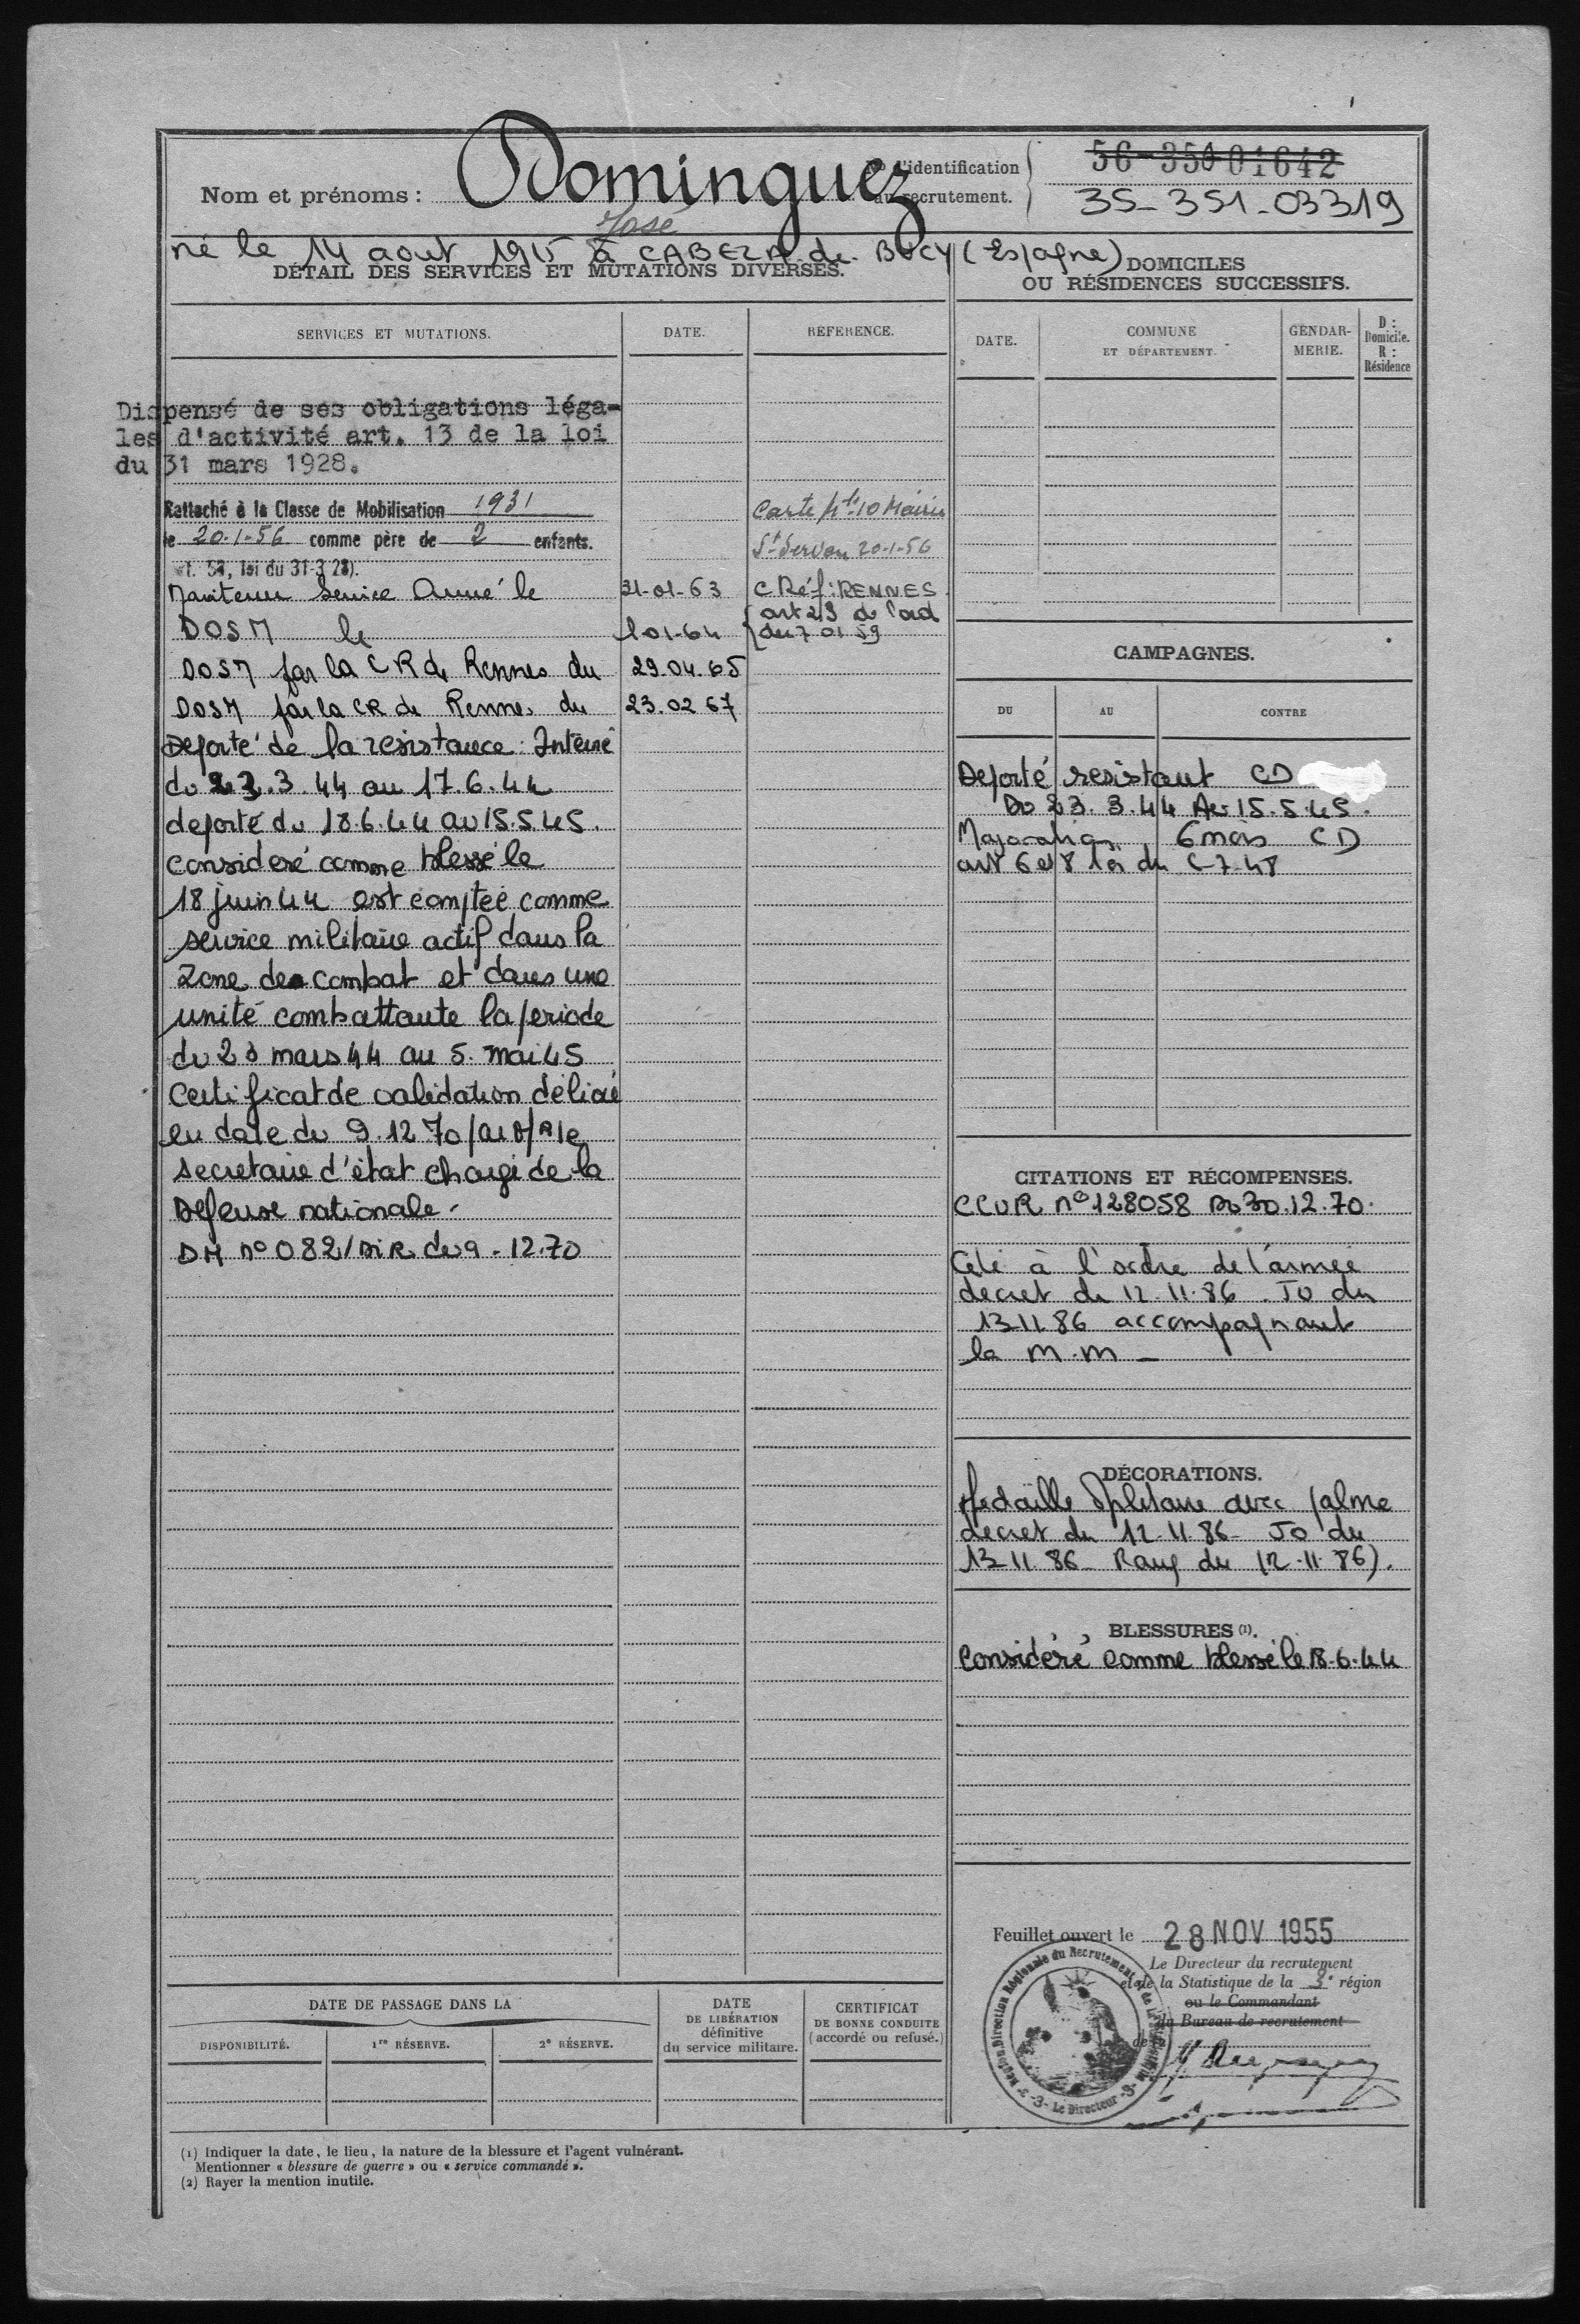 Nom et prénoms : Dominguez
José
N° d'identification
au recrutement.
56-350-01642
35-351-03319
né le 14 aout 1915 à CABEZA de BUCY (Espagne)
DÉTAIL DES SERVICES ET MUTATIONS DIVERSES.
SERVICES ET MUTATIONS.
DATE.
RÉFÉRENCE.
Dispensé de ses obligations léga-
les d'activité art. 13 de la loi
du 31 mars 1928.
Rattaché à la Classe de Mobilisation 1931
le 20-1-56 comme père de 2 enfants.
art. 58, loi du 31-3 28).
Carte Mle 10 Mairie
St Servan 20-1-56
Maintenu Service Armé le 31-01-63 C Réf: RENNES
DOSM le 1-01-64 { art 23 de l'ord
du 7 01 59
DOSM par la CR de Rennes du 29.04.65
DOSM par la CR de Rennes du 23.02 67
Déporté de la resistance : Interné
du 23.3.44 au 17.6.44
deporté du 18.6.44 au 15.5.45.
consideré comme blessé le
18 juin 44 est comptée comme
service militaire actif dans la
zone de combat et dans une
unité combattante la periode
du 23 mars 44 au 5. mai 45
Certificat de validation délivré
en date du 9.12 70 par le
secretaire d'état chargé de la
Defense nationale.
DM n° 082/ DIR du 9.12.70
DOMICILES
OU RÉSIDENCES SUCCESSIFS.
DATE.
COMMUNE
ET DÉPARTEMENT.
GENDAR-
MERIE.
D :
Domicile.
R :
Résidence
CAMPAGNES.
DU
AU
CONTRE
Deporté resistant CD
Du 23.3.44 Au 15.5.45.
Majoration 6 mois CD
art 6 et 8 loi du
CITATIONS ET RÉCOMPENSES.
CCVR n° 128058 Du 30.12.70.
Cité à l'ordre de l'armée
decret du 12.11.86 JO du
13 11 86 accompagnant
la M.M
DÉCORATIONS.
Medaille Militaire avec palme
decret du 12-11-86- JO du
13 11 86 - Rang du 12-11-86).
BLESSURES (1).
Considéré comme blessé le 18-6-44
Feuillet ouvert le 28 NOV 1955
Le Directeur du recrutement
et de la Statistique de la 3e région
ou le Commandant
du Bureau de recrutement
de
Direction Régionale du Recrutement et de la Statistique
-3- Le Directeur -3-
DATE DE PASSAGE DANS LA
DISPONIBILITÉ.
1re RÉSERVE.
2e RÉSERVE.
DATE
DE LIBÉRATION
définitive
du service militaire.
CERTIFICAT
DE BONNE CONDUITE
(accordé ou refusé.)
(1) Indiquer la date, le lieu, la nature de la blessure et l'agent vulnérant.
Mentionner « blessure de guerre » ou « service commandé ».
(2) Rayer la mention inutile.